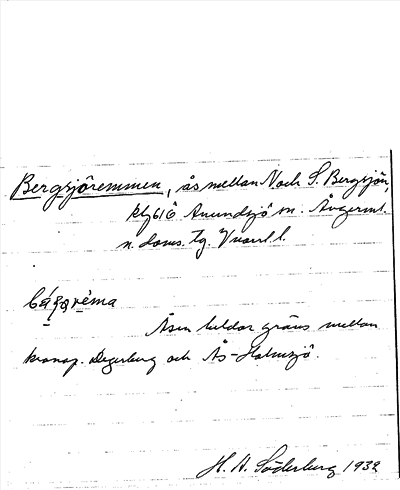 Bergsjöremmen, ås mellan N och S. Bergsjön,
Anundsjö sn. Ångerml.
n. doms. tg. Vnorrl. l.
Åsen bildar gräns mellan
kronop. Degerberg och Ås-Holmsjö.
H. A. Söderberg 1932